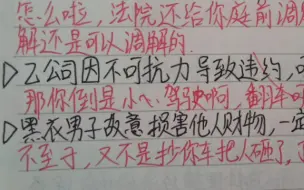 怎么啦，法院还给你庭前调
解还是可以调解的.
▷乙公司因不可抗力导致违约，
那你倒是小心驾驶啊，翻车可
▷黑衣男子故意损害他人财物，一定
不至于，又不是抄你车把人砸了，